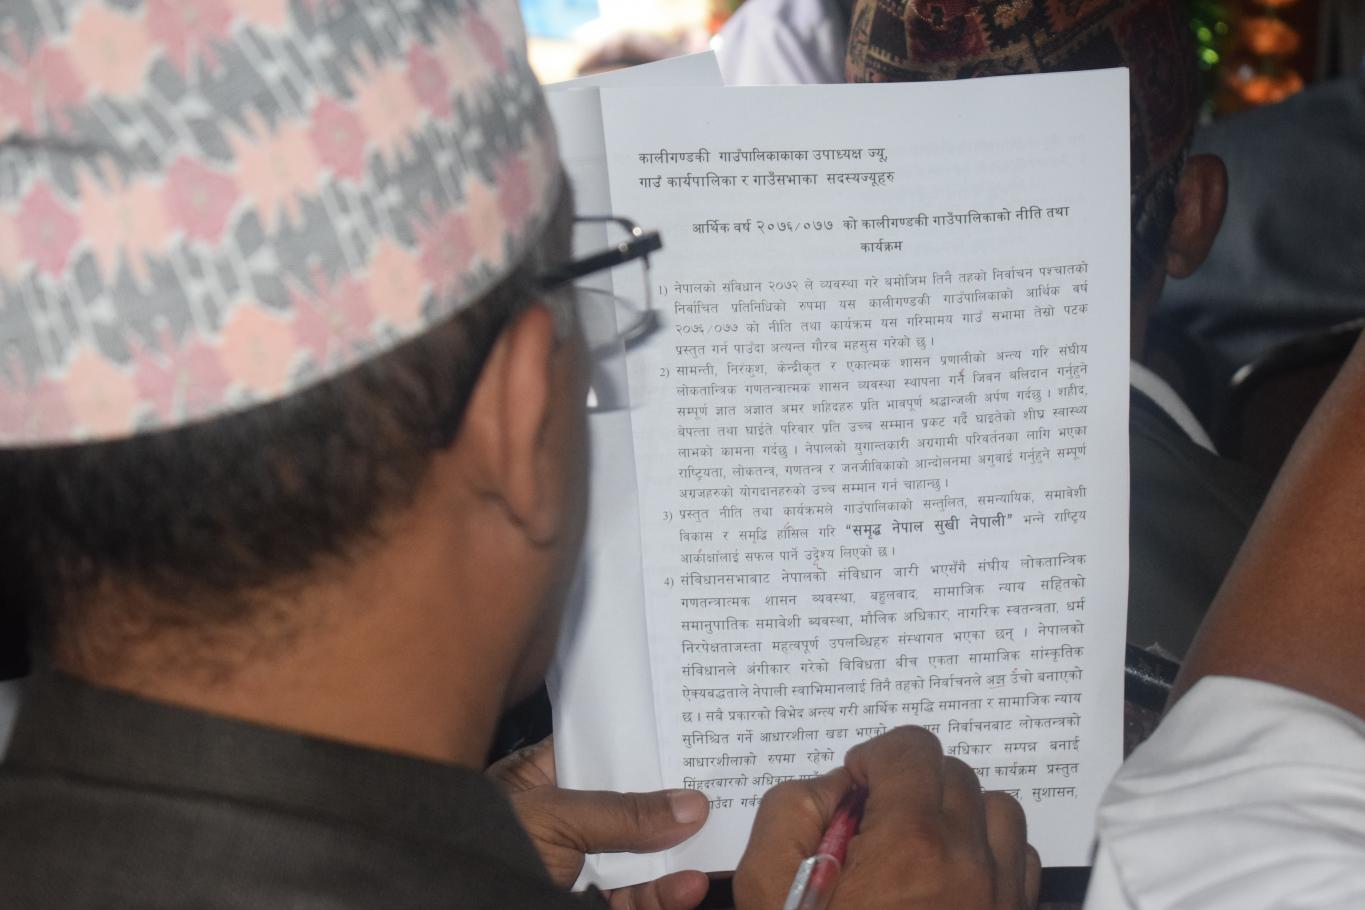 कालीगण्डकी गाउँपालिकाकाका उपाध्यक्ष ज्यू,
गाउँ कार्यपालिका र गाउँसभाका सदस्यज्यूहरु
आर्थिक वर्ष २०७६/०७७ को कालीगण्डकी गाउँपालिकाको नीति तथा
कार्यक्रम
1) नेपालको संविधान २०७२ ले व्यवस्था गरे बमोजिम तिनै तहको निर्वाचन पश्चातको
निर्वाचित प्रतिनिधिको रुपमा यस कालीगण्डकी गाउँपालिकाको आर्थिक वर्ष
२०७६/०७७ को नीति तथा कार्यक्रम यस गरिमामय गाउँ सभामा तेस्रो पटक
प्रस्तुत गर्न पाउँदा अत्यन्त गौरब महसुस गरेको छु ।
2) सामन्ती, निरंकुश, केन्द्रीकृत र एकात्मक शासन प्रणालीको अन्त्य गरि संघीय
लोकतान्त्रिक गणतन्त्रात्मक शासन व्यवस्था स्थापना गर्न जिवन बलिदान गर्नुहुने
सम्पूर्ण ज्ञात अज्ञात अमर शहिदहरु प्रति भावपूर्ण श्रद्धान्जली अर्पण गर्दछु । शहीद,
बेपत्ता तथा घाईते परिवार प्रति उच्च सम्मान प्रकट गर्दै घाइतेको शीघ्र स्वास्थ्य
लाभको कामना गर्दछु । नेपालको युगान्तकारी अग्रगामी परिवर्तनका लागि भएका
राष्ट्रियता, लोकतन्त्र, गणतन्त्र र जनजीविकाको आन्दोलनमा अगुवाई गर्नुहुने सम्पूर्ण
अग्रजहरुको योगदानहरुको उच्च सम्मान गर्न चाहान्छु ।
3) प्रस्तुत नीति तथा कार्यक्रमले गाउँपालिकाको सन्तुलित, समन्यायिक, समावेशी
विकास र समृद्धि हाँसिल गरि "समृद्ध नेपाल सुखी नेपाली" भन्ने राष्ट्रिय
आकांक्षालाई सफल पार्ने उद्देश्य लिएको छ ।
4) संविधानसभाबाट नेपालको संविधान जारी भएसँगै संघीय लोकतान्त्रिक
गणतन्त्रात्मक शासन व्यवस्था, बहुलवाद, सामाजिक न्याय सहितको
समानुपातिक समावेशी ब्यवस्था, मौलिक अधिकार, नागरिक स्वतन्त्रता, धर्म
निरपेक्षताजस्ता महत्वपूर्ण उपलब्धिहरु संस्थागत भएका छन् । नेपालको
संविधानले अंगीकार गरेको विविधता बीच एकता सामाजिक सांस्कृतिक
ऐक्यबद्धताले नेपाली स्वाभिमानलाई तिनै तहको निर्वाचनले अझ उँचो बनाएको
छ । सबै प्रकारको विभेद अन्त्य गरी आर्थिक समृद्धि समानता र सामाजिक न्याय
सुनिश्चित गर्ने आधारशीला खडा भएको यस निर्वाचनबाट लोकतन्त्रको
आधारशीलाको रुपमा रहेको अधिकार सम्पन्न बनाई
सिंहदरबारको अधिकार तथा कार्यक्रम प्रस्तुत
सुशासन,